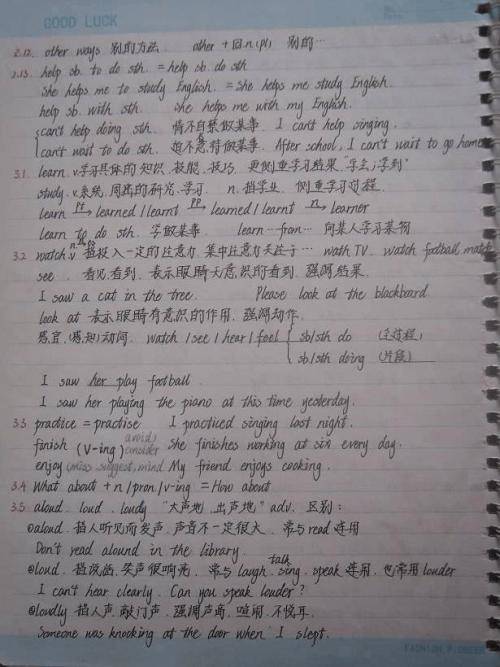 GOOD LUCK
2.12. other ways 别的方法 other + 可n(pl) 别的…
2.13. help sb. to do sth. = help sb. do sth
She helps me to study English. = She helps me study English.
help sb. with sth. She helps me with my English.
can't help doing sth. 情不自禁做某事. I can't help singing.
can't wait to do sth. 迫不急待做某事. After school, I can't wait to go home
3.1. learn. v学习具体的知识、技能、技巧. 更侧重学习结果 "学会;学到"
study. v系统、周密的研究、学习. n. 指学业. 侧重学习过程.
learn pt→ learned / learnt pp→ learned / learnt n→ learner
learn to do sth. 学做某事. learn…from… 向某人学习某物
3.2 watch v 指投入一定的注意力, 集中注意力关注于… wath TV. watch football match
see. 看见, 看到. 表示眼睛无意识的看到. 强调结果.
I saw a cat in the tree. Please look at the blackboard
look at 表示眼睛有意识的作用. 强调动作.
感官, (感知)动词. watch / see / hear / feel { sb/sth do (全过程)
sb/sth doing (片段)
I saw her play football.
I saw her playing the piano at this time yesterday.
3.3 practice = practise I practiced singing last night.
finish (v-ing) avoid, consider She finishes working at six every day.
enjoy (miss suggest, mind My friend enjoys cooking.
3.4 What about + n / pron / v-ing = How about
3.5 aloud. loud. loudy "大声地, 出声地" adv. 区别:
①aloud. 指人听见而发声. 声音不一定很大. 常与read连用
Don't read alound in the library.
②loud. 指说话、笑声很响亮. 常与 laugh, talk sing, speak 连用. 也常用louder
I can't hear clearly. Can you speak louder?
③loudly 指人声, 敲门声. 强调声高, 喧闹, 不悦耳.
Someone was knocking at the door when I slept.
FASHION PIONEER